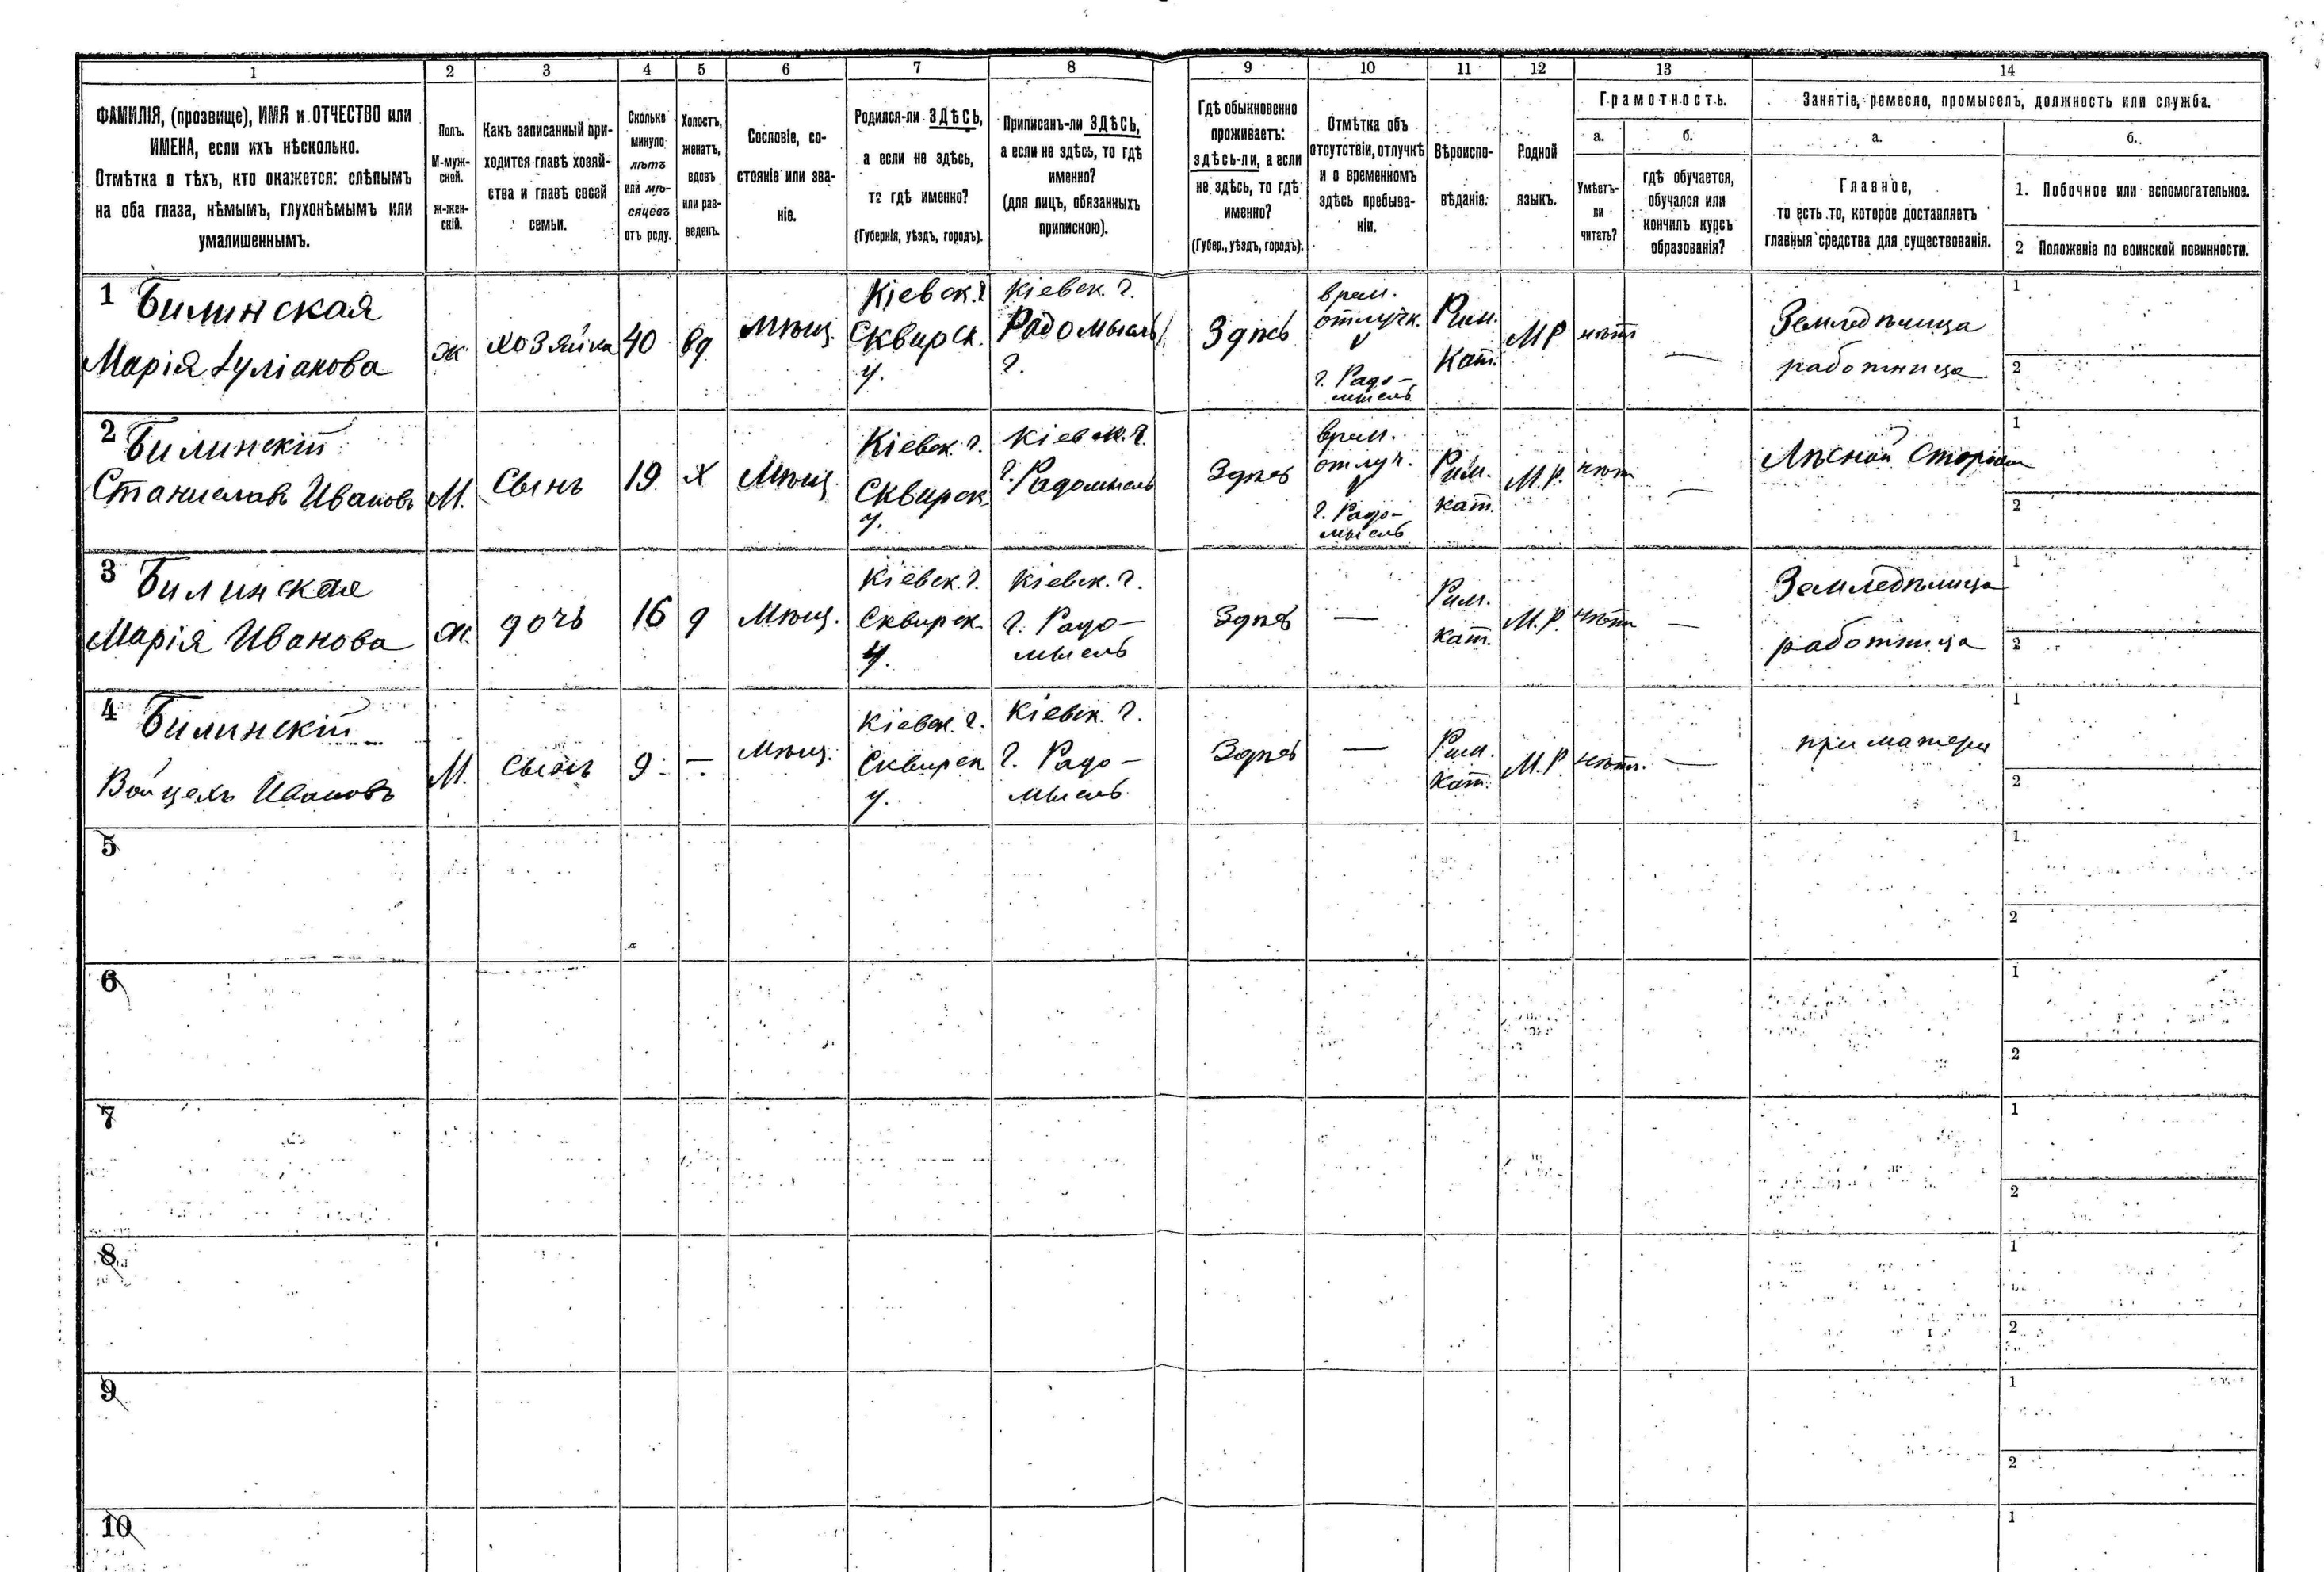 1 2 3 4 5 6 7 8 9 10 11 12 13 14
ФАМИЛІЯ, (прозвище), ИМЯ и ОТЧЕСТВО или
ИМЕНА, если ихъ нѣсколько.
Отмѣтка о тѣхъ, кто окажется: слѣпымъ
на оба глаза, нѣмымъ, глухонѣмымъ или
умалишеннымъ.
Полъ.
М-муж-
ской.
ж-жен-
скій.
Какъ записанный при-
ходится главѣ хозяй-
ства и главѣ своей
семьи.
Сколько
минуло
лѣтъ
или мѣ-
сяцевъ
отъ роду.
Холостъ,
женатъ,
вдовъ
или раз-
веденъ.
Сословіе, со-
стояніе или зва-
ніе.
Родился-ли ЗДѢСЬ,
а если не здѣсь,
то гдѣ именно?
(Губернія, уѣздъ, городъ).
Приписанъ-ли ЗДѢСЬ,
а если не здѣсь, то гдѣ
именно?
(для лицъ, обязанныхъ
припискою).
Гдѣ обыкновенно
проживаетъ:
здѣсь-ли, а если
не здѣсь, то гдѣ
именно?
(Губер., уѣздъ, городъ).
Отмѣтка объ
отсутствіи, отлучкѣ
и о временномъ
здѣсь пребыва-
ніи.
Вѣроиспо-
вѣданіе.
Родной
языкъ.
Грамотность.
а.
Умѣетъ-
ли
читать?
б.
гдѣ обучается,
обучался или
кончилъ курсъ
образованія?
Занятіе, ремесло, промыселъ, должность или служба.
а.
Главное,
то есть то, которое доставляетъ
главныя средства для существованія.
б.
1. Побочное или вспомогательное.
2 Положеніе по воинской повинности.
1 Билинская
Марія
ж
хозяйка
40
вд
Мѣщ.
Кіевск. г.
Сквирск.
у.
Кіевск. г.
Радомысль
г.
Здѣсь
врем.
отлучк.
г. Радо-
мысль
Рим.
Кат.
М Р
нѣтъ
—
работница
1
2
2 Билинскій
Станиславъ Ивановъ
М.
Сынъ
19
х
Мѣщ.
Кіевск. г.
Сквирск.
у.
Кіевск. г.
г. Радомысль
Здѣсь
врем.
отлуч.
г. Радо-
мысль
Рим.
кат.
М. Р.
нѣтъ
—
Лѣсной Сторожъ
1
2
3 Билинская
Марія Иванова
ж.
дочь
16
д
Мѣщ.
Кіевск. г.
Сквирск.
у.
Кіевск. г.
г. Радо-
мысль
Здѣсь
—
Рим.
кат.
М. Р.
нѣтъ
—
Земледѣлица
работница
1
2
4 Билинскій
Войцехъ Ивановъ
М.
Сынъ
9.
—
Мѣщ.
Кіевск. г.
Сквирск
у.
Кіевск. г.
г. Радо-
мысль
Здѣсь
—
Рим.
Кат.
М. Р.
нѣтъ.
—
при матери
1
2
5
1
2
6
1
2
7
1
2
8
1
2
9
1
2
10
1